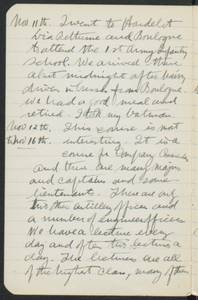 Nov 11th. I went to Hardelot
via Bethune and Boulogne
to attend the 1st Army Infantry
School. We arrived there
about midnight after having
driven in busses from Boulogne.
we had a good meal and
retired. I took my batman.
Nov 12th. This course is not
to Nov 16th. interesting. It is a
course for Company Commanders
and there are many majors
and captains and some
lieutenants. There are only
two other artillery officers and
a number of engineer officers.
We have a lecture every
day and often two lectures a
day. The lectures are all
of the highest class, many of them